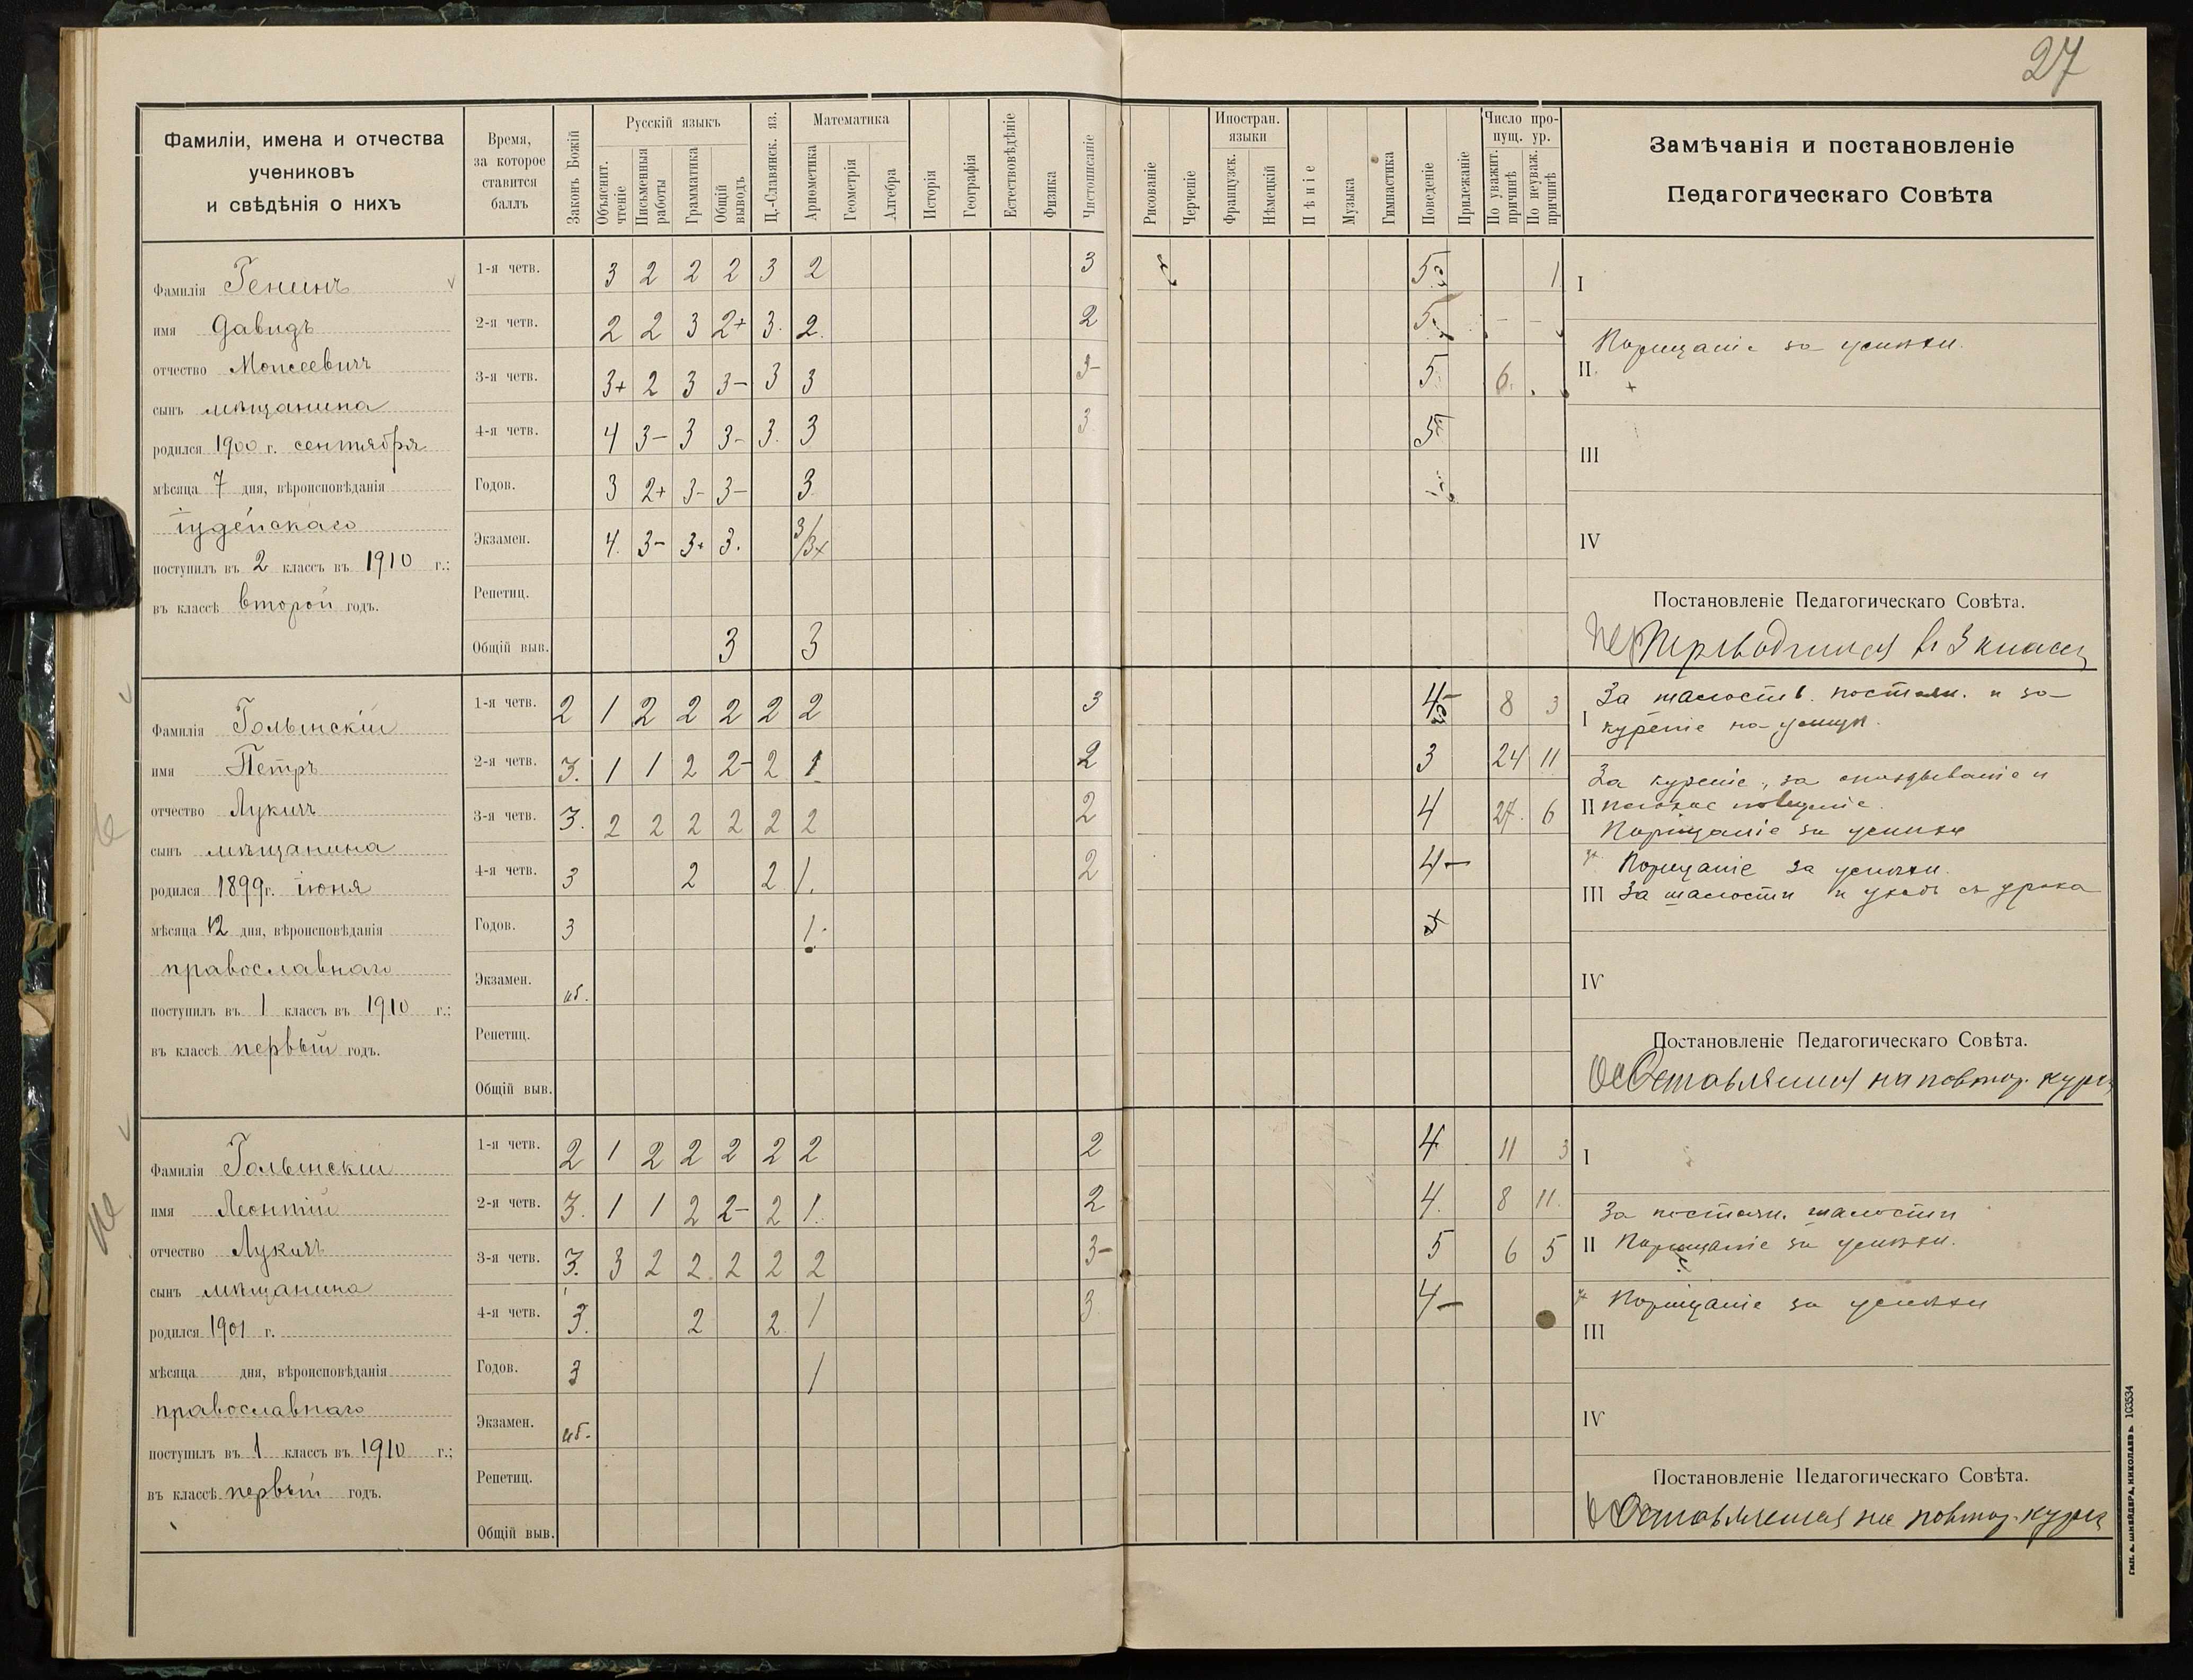 27
Фамиліи, имена и отчества
учениковъ
и свѣдѣнія о нихъ
Время,
за которое
ставится
баллъ
Законъ Божій
Русскій языкъ
Объяснит.
чтеніе
Письменныя
работы
Грамматика
Общій
выводъ
Ц.-Славянск. яз.
Математика
Ариѳметика
Геометрія
Алгебра
Исторія
Географія
Естествовѣдѣніе
Физика
Чистописаніе
Рисованіе
Черченіе
Иностран.
языки
Французск.
Нѣмецкій
Пѣніе
Музыка
Гимнастика
Поведеніе
Прилежаніе
Число про-
пущ. ур.
По уважит.
причинѣ
По неуваж.
причинѣ
Замѣчанія и постановленіе
Педагогическаго Совѣта
Фамилія Генинъ
имя Давидъ
отчество Моисеевичъ
сынъ мѣщанина
родился 1900 г. сентября
мѣсяца 7 дня, вѣроисповѣданія
іудейскаго
поступилъ въ 2 классъ въ 1910 г.;
въ классѣ второй годъ.
1-я четв. 3 2 2 2 3 2 3 5 1
2-я четв. 2 2 3 2+ 3. 2. 2 5 - -
3-я четв. 3+ 2 3 3- 3 3 3- 5 6.
4-я четв. 4 3- 3 3- 3. 3 3 5
Годов. 3 2+ 3- 3- 3
Экзамен. 4. 3- 3+ 3. 3/3+
Репетиц.
Общій выв. 3 3
I
Порицаніе за успѣхи.
II.
III
IV
Постановленіе Педагогическаго Совѣта.
Переводится въ 3 классъ
Фамилія Голынскій
имя Петръ
отчество Лукичъ
сынъ мѣщанина
родился 1899 г. іюня
мѣсяца 12 дня, вѣроисповѣданія
православнаго
поступилъ въ 1 классъ въ 1910 г.;
въ классѣ первый годъ.
1-я четв. 2 1 2 2 2 2 2 3 4- 8 3
2-я четв. 3. 1 1 2 2- 2 1 2 3 24 11
3-я четв. 3. 2 2 2 2 2 2 2 4 27. 6
4-я четв. 3 2 2 1. 2 4-
Годов. 3 1.
Экзамен. иб.
Репетиц.
Общій выв.
За шалости постоян. и за
I куреніе на улицѣ.
За куреніе, за опаздываніе и
II плохое поведеніе.
Порицаніе за успѣхи
Порицаніе за успѣхи.
III За шалости и уходъ съ урока
IV
Постановленіе Педагогическаго Совѣта.
Оставляется на повтор. курсъ
Фамилія Голынскій
имя Леонтій
отчество Лукичъ
сынъ мѣщанина
родился 1901 г.
мѣсяца дня, вѣроисповѣданія
православнаго
поступилъ въ 1 классъ въ 1910 г.;
въ классѣ первый годъ.
1-я четв. 2 1 2 2 2 2 2 2 4 11 3
2-я четв. 3. 1 1 2 2- 2 1. 2 4. 8 11.
3-я четв. 3. 3 2 2 2 2 2 3- 5 6 5
4-я четв. 3. 2 2 1 3 4-
Годов. 3 1
Экзамен. иб.
Репетиц.
Общій выв.
I
За постоян. шалости
II Порицаніе за успѣхи.
Порицаніе за успѣхи
III
IV
Постановленіе Педагогическаго Совѣта.
Оставляется на повтор. курсъ
Тип. А. Шнейдера, Николаевъ 103534